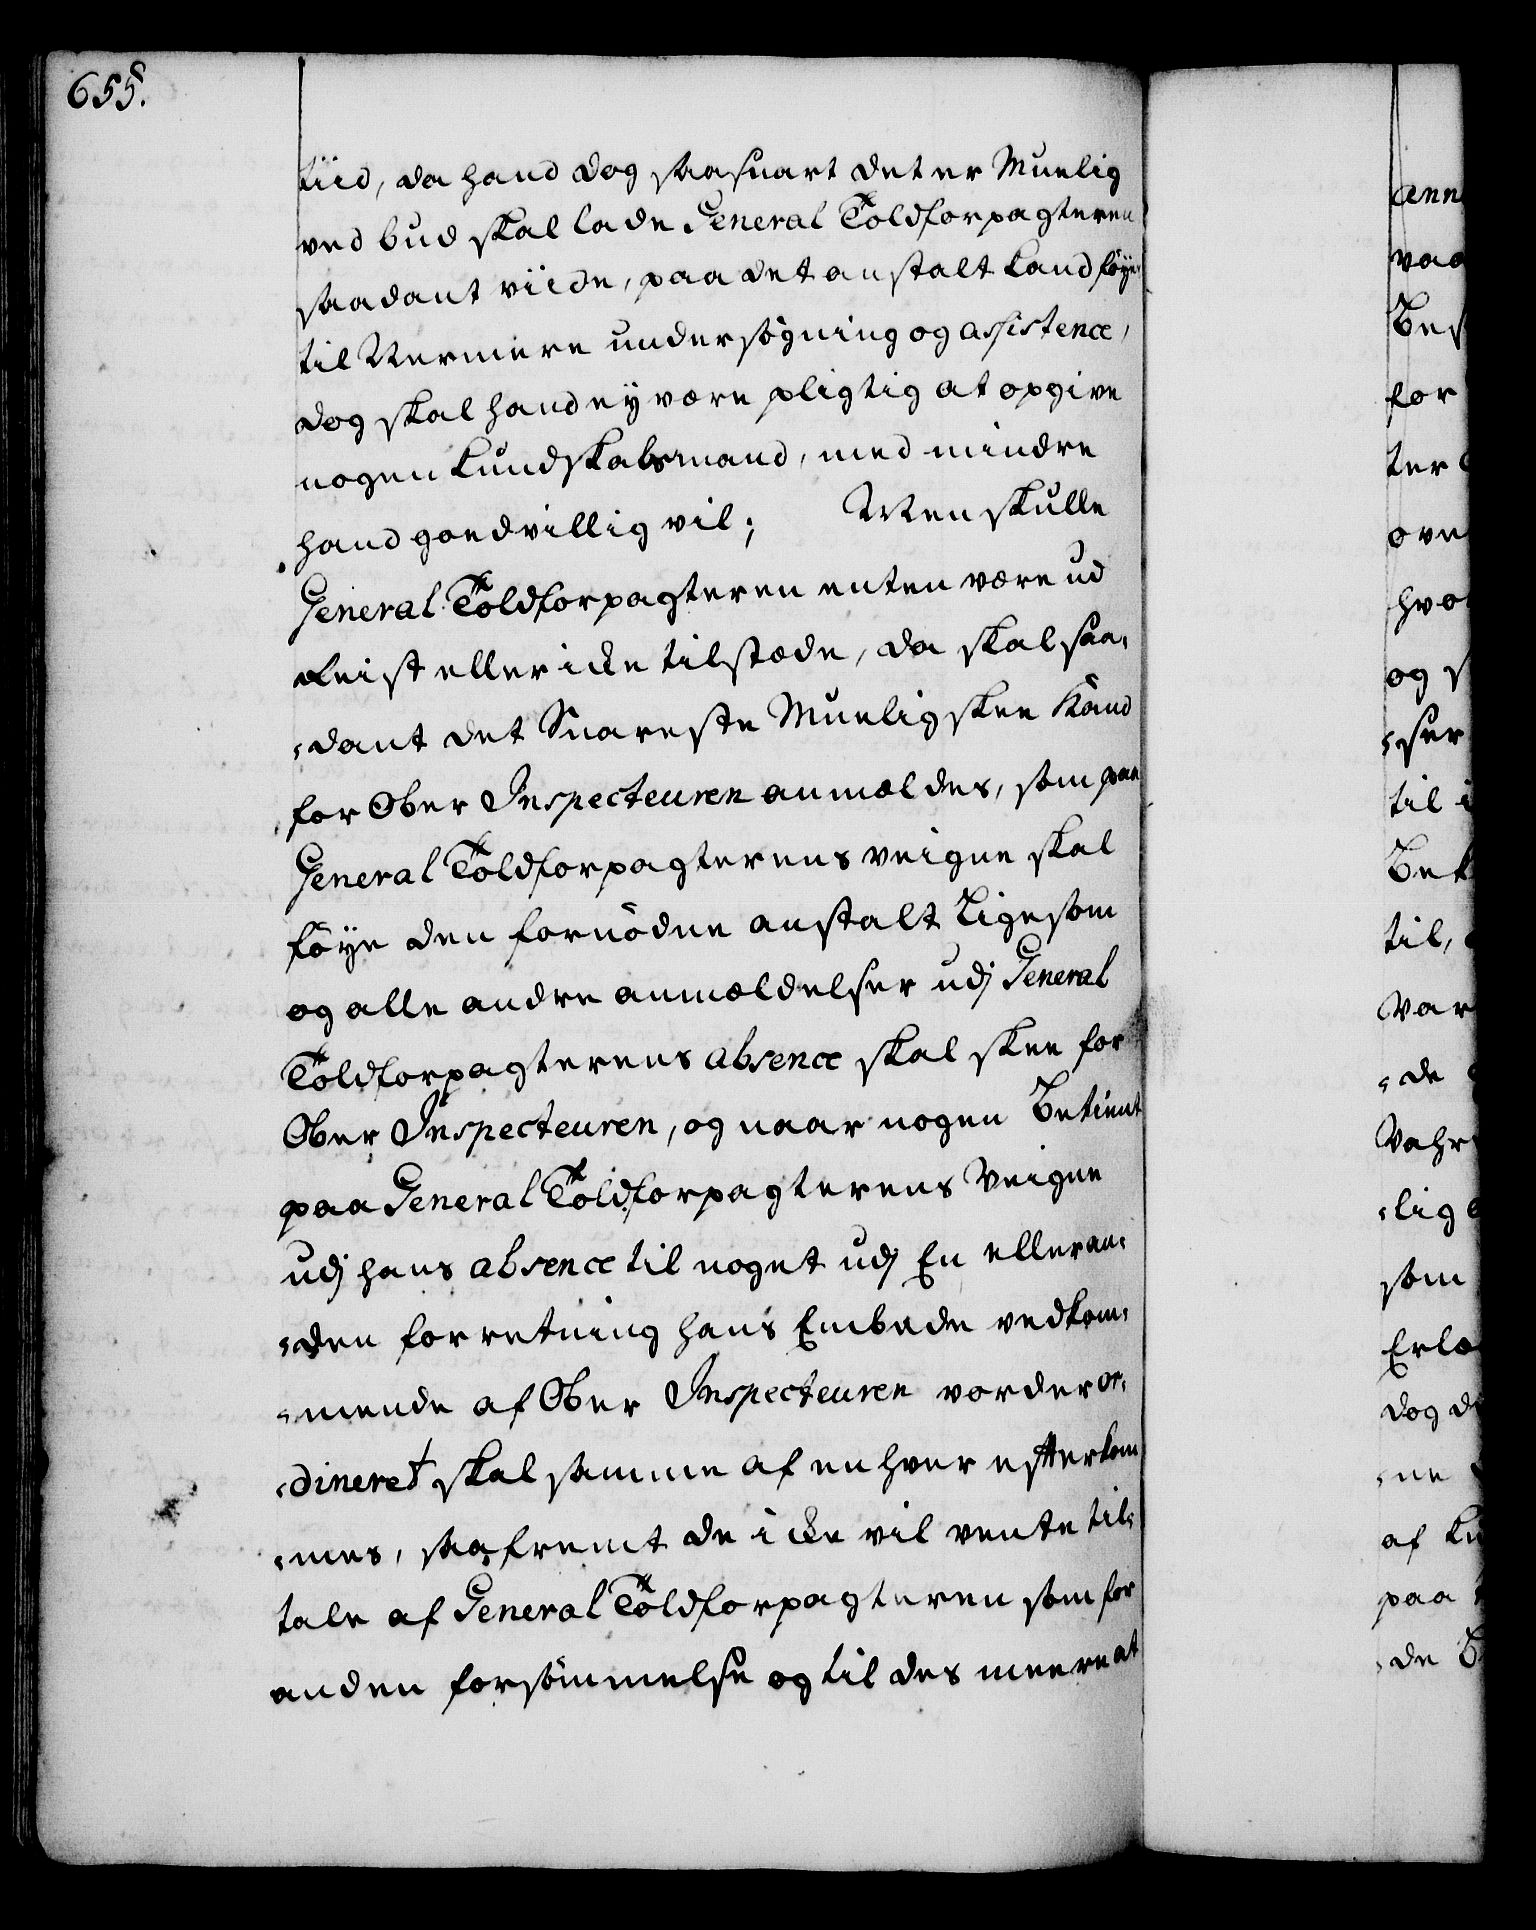 655.
tiid, da hand dog saasnart det er Muelig
ved bud skal lade General Toldforpagteren
saadant viide, paa det anstalt kand föyes
til Nermere undersögning og assistence,
dog skal hand ey være pligtig at opgive
nogen kundskabsmand, med mindre
hand goedvillig vil; Men skulle
General Toldforpagteren enten være ud
Reist eller icke tilstæde, da skal saa¬
¬dant det Snareste Mueligskee kand
for Ober Inspecteuren anmældes, som paa
General Toldforpagterens veigne skal
föye den fornödne anstalt Ligesom
og alle andre anmældelser udj General
Toldforpagterens absence skal skee for
Ober Inspecteuren, og naar nogen Betient
paa General Toldforpagterens Veigne
udj hans absence til noget udj En eller an¬
¬den forretning hans Embede vedkom¬
¬mende af Ober Inspecteuren vorder or¬
¬dineret skal samme af enhver efterkom
¬mes, saafremt de icke vil vente til¬
tale af General Toldforpagteren som for
anden forsömmelse og til des meere at
ann
vaa
Bes
for
ter
ove
hvo
og s
¬ser
til i
Bek
til,
Var
¬de
Vahr
¬lig
som
Erlæ
dog d
¬ne
af ku
paa
¬de B